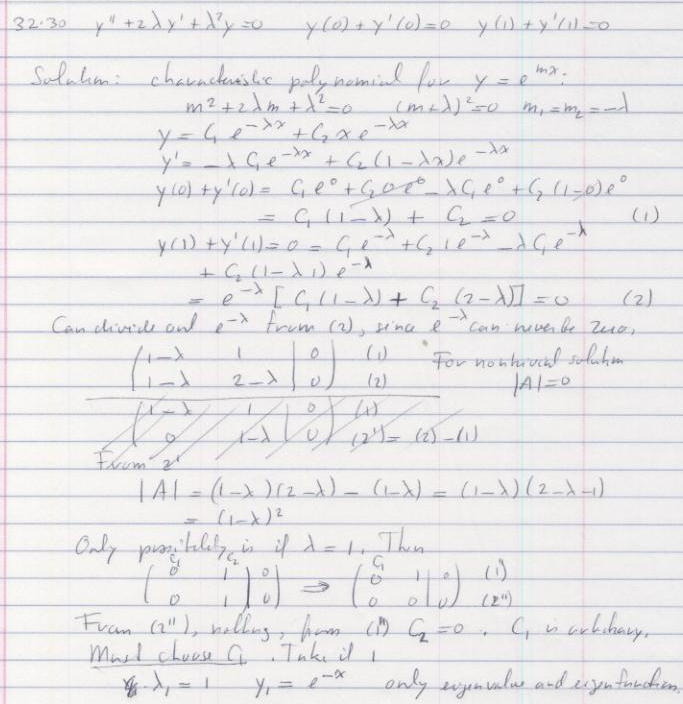 32.30 y" + 2λy' + λ²y = 0 y(0) + y'(0) = 0 y(1) + y'(1) = 0
Solution: characteristic polynomial for y = e^{mx}:
m² + 2λm + λ² = 0 (m+λ)² = 0 m₁ = m₂ = -λ
y = C₁ e^{-λx} + C₂ x e^{-λx}
y' = -λ C₁ e^{-λx} + C₂ (1-λx) e^{-λx}
y(0) + y'(0) = C₁ e⁰ + C₂ 0 e⁰ - λ C₁ e⁰ + C₂ (1-0) e⁰
= C₁ (1-λ) + C₂ = 0 (1)
y(1) + y'(1) = 0 = C₁ e^{-λ} + C₂ 1 e^{-λ} - λ C₁ e^{-λ}
+ C₂ (1-λ1) e^{-λ}
= e^{-λ} [C₁ (1-λ) + C₂ (2-λ)] = 0 (2)
Can divide out e^{-λ} from (2), since e^{-λ} can never be zero.
(1-λ 1 | 0) (1) For nontrivial solution
(1-λ 2-λ | 0) (2) |A| = 0
(1-λ 1 | 0) (1)
(0 1-λ | 0) (2') = (2) - (1)
From 2'
|A| = (1-λ)(2-λ) - (1-λ) = (1-λ)(2-λ-1)
= (1-λ)²
Only possibility is if λ = 1. Then
C₁ C₂ C₁
(0 1 | 0) ⇒ (0 1 | 0) (1)
(0 1 | 0) (0 0 | 0) (2")
From (2"), nothing, from (1") C₂ = 0. C₁ is arbitrary.
Must choose C₁. Take it 1
λ₁ = 1 y₁ = e^{-x} only eigenvalue and eigenfunction.